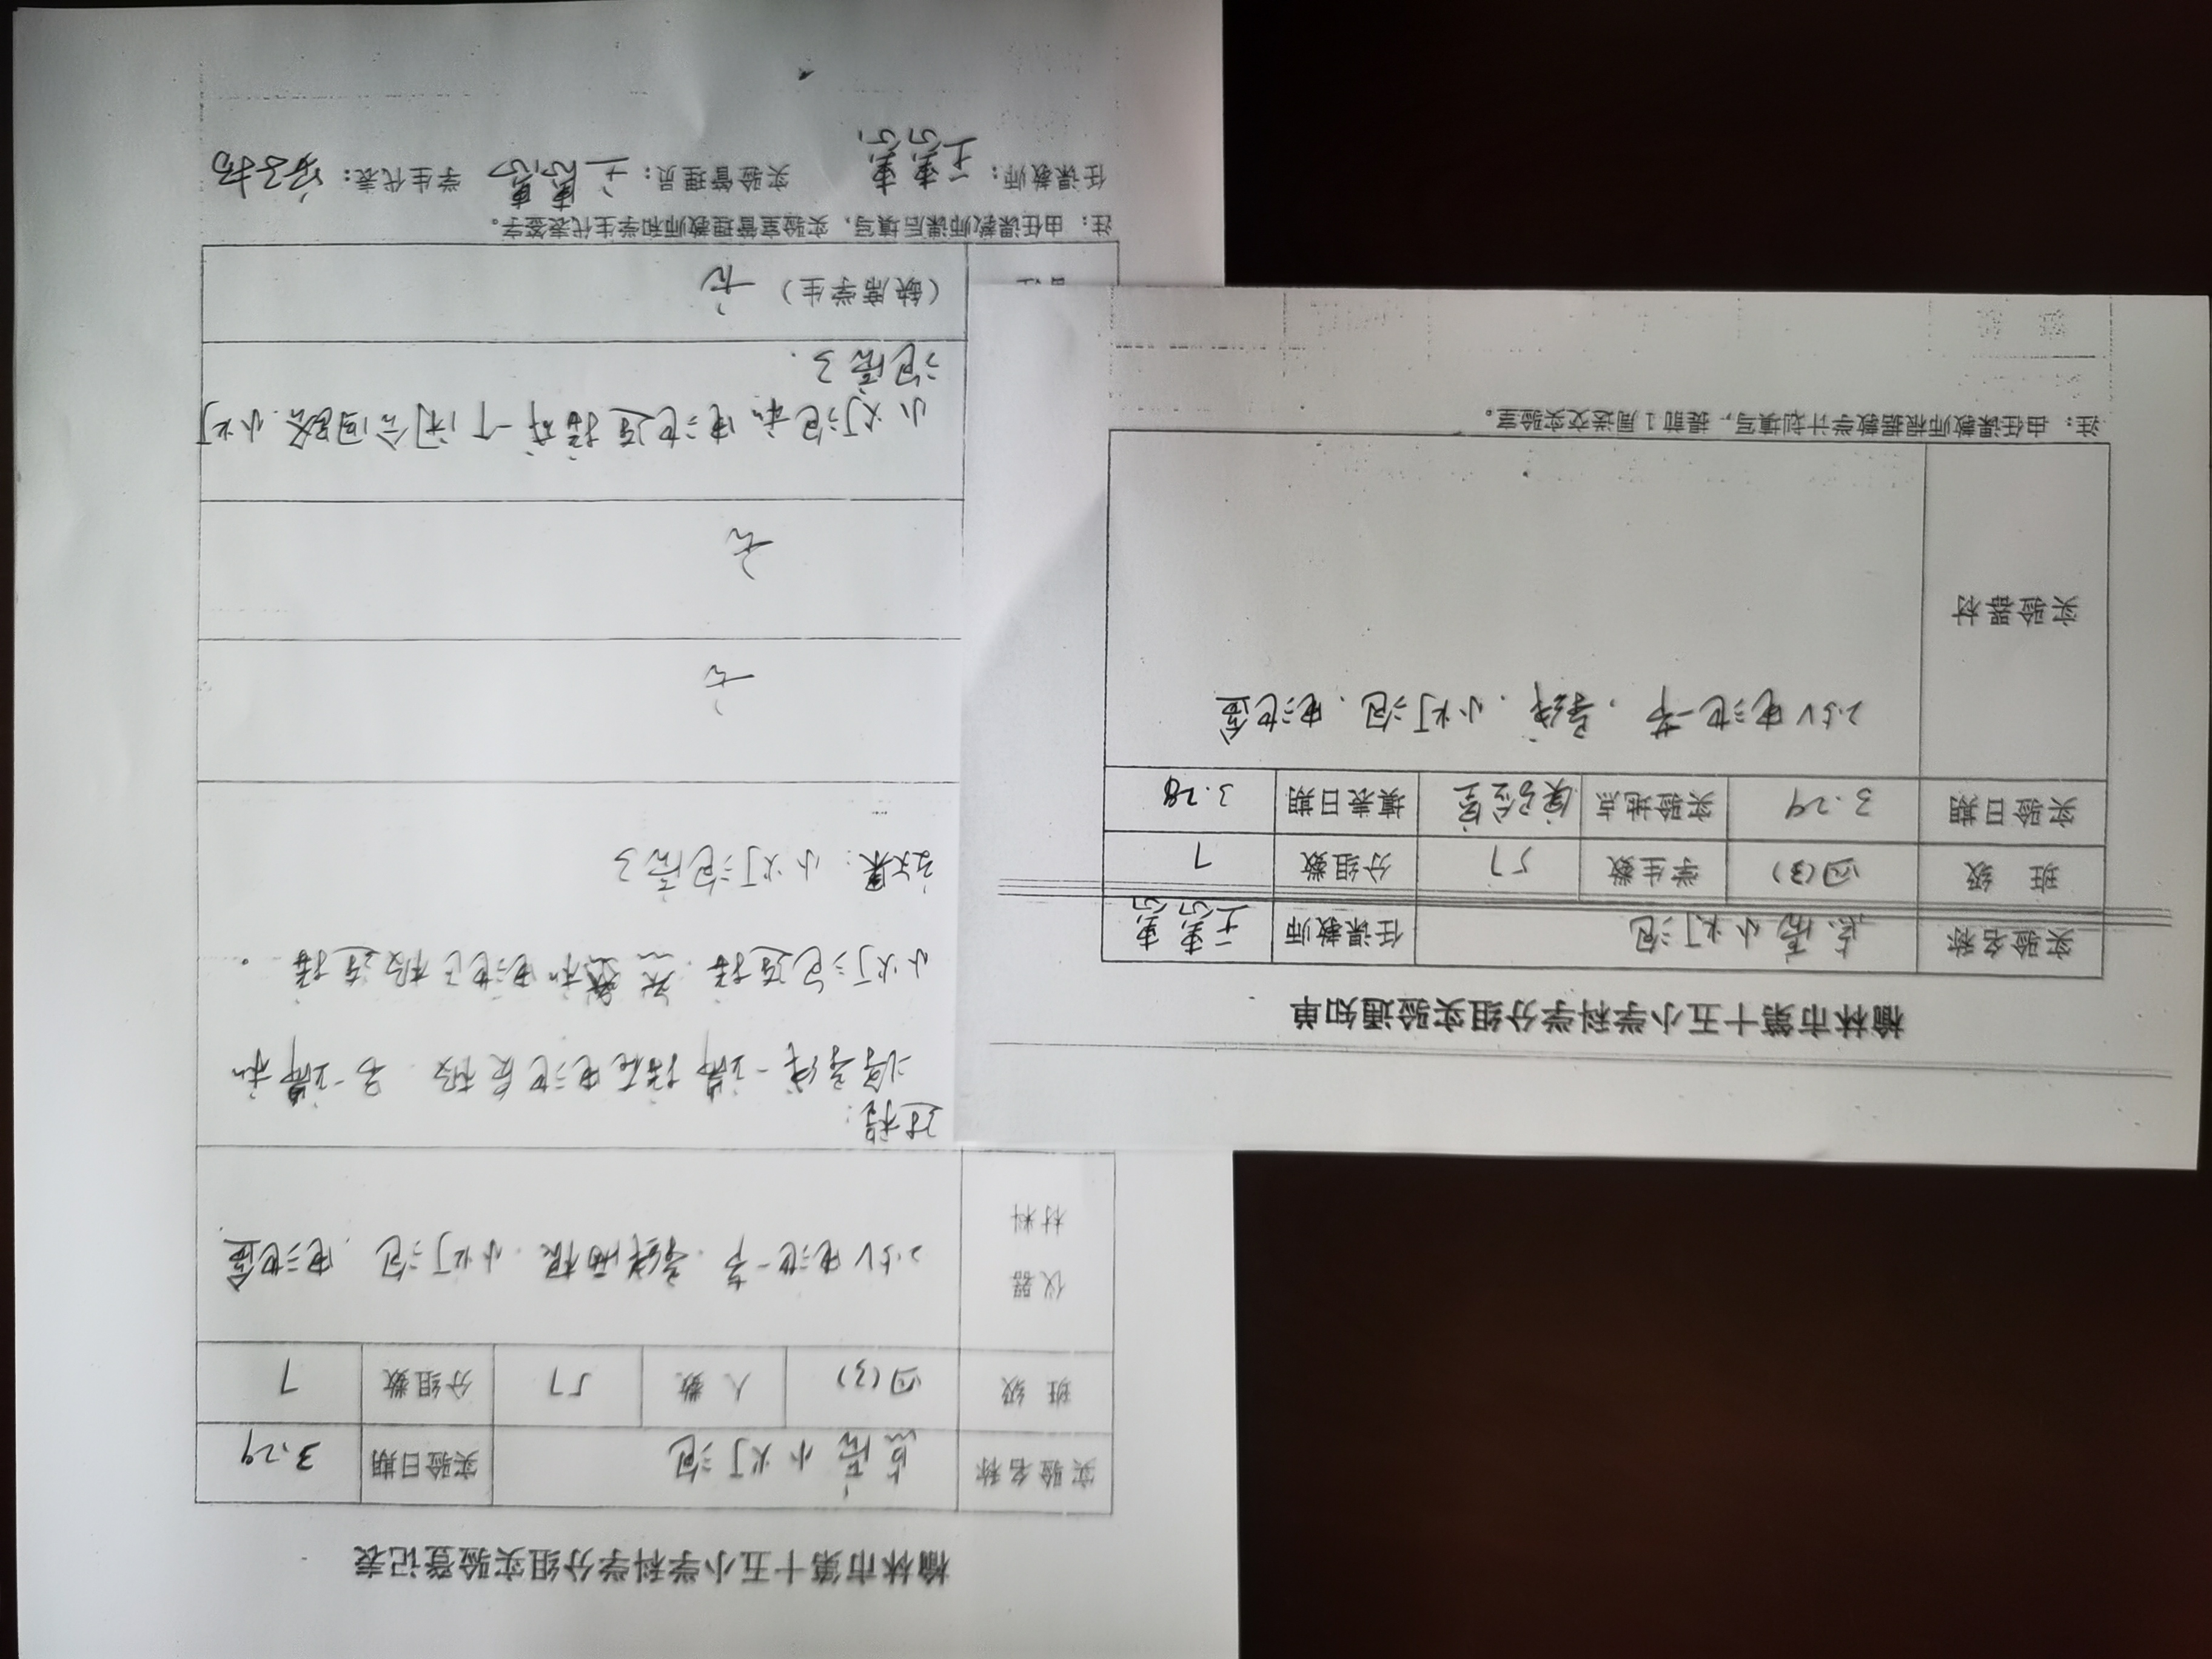 榆林市第十五小学科学分组实验通知单
实验名称 点亮小灯泡 任课教师
班 级 四(3) 学生数 57 分组数 7
实验日期 3.29 实验地点 实验室 填表日期 3.28
实验器材 2.5V电池一节、导线、小灯泡、电池盒
注：由任课教师根据教学计划填写，提前1周送交实验室。
榆林市第十五小学科学分组实验登记表
实验名称 点亮小灯泡 实验日期 3.29
班 级 四(3) 人 数 57 分组数 7
仪器
材料
2.5V电池一节、导线两根、小灯泡、电池盒
过程：
将导线一端接在电池负极、另一端和
小灯泡连接 和电池正极连接。
效果：小灯泡亮了
无
无
小灯泡和电池连接有一个闭合回路、小灯
泡亮了.
(缺席学生) 无
注：由任课教师课后填写，实验室管理教师和学生代表签字。
任课教师： 实验管理员： 学生代表：